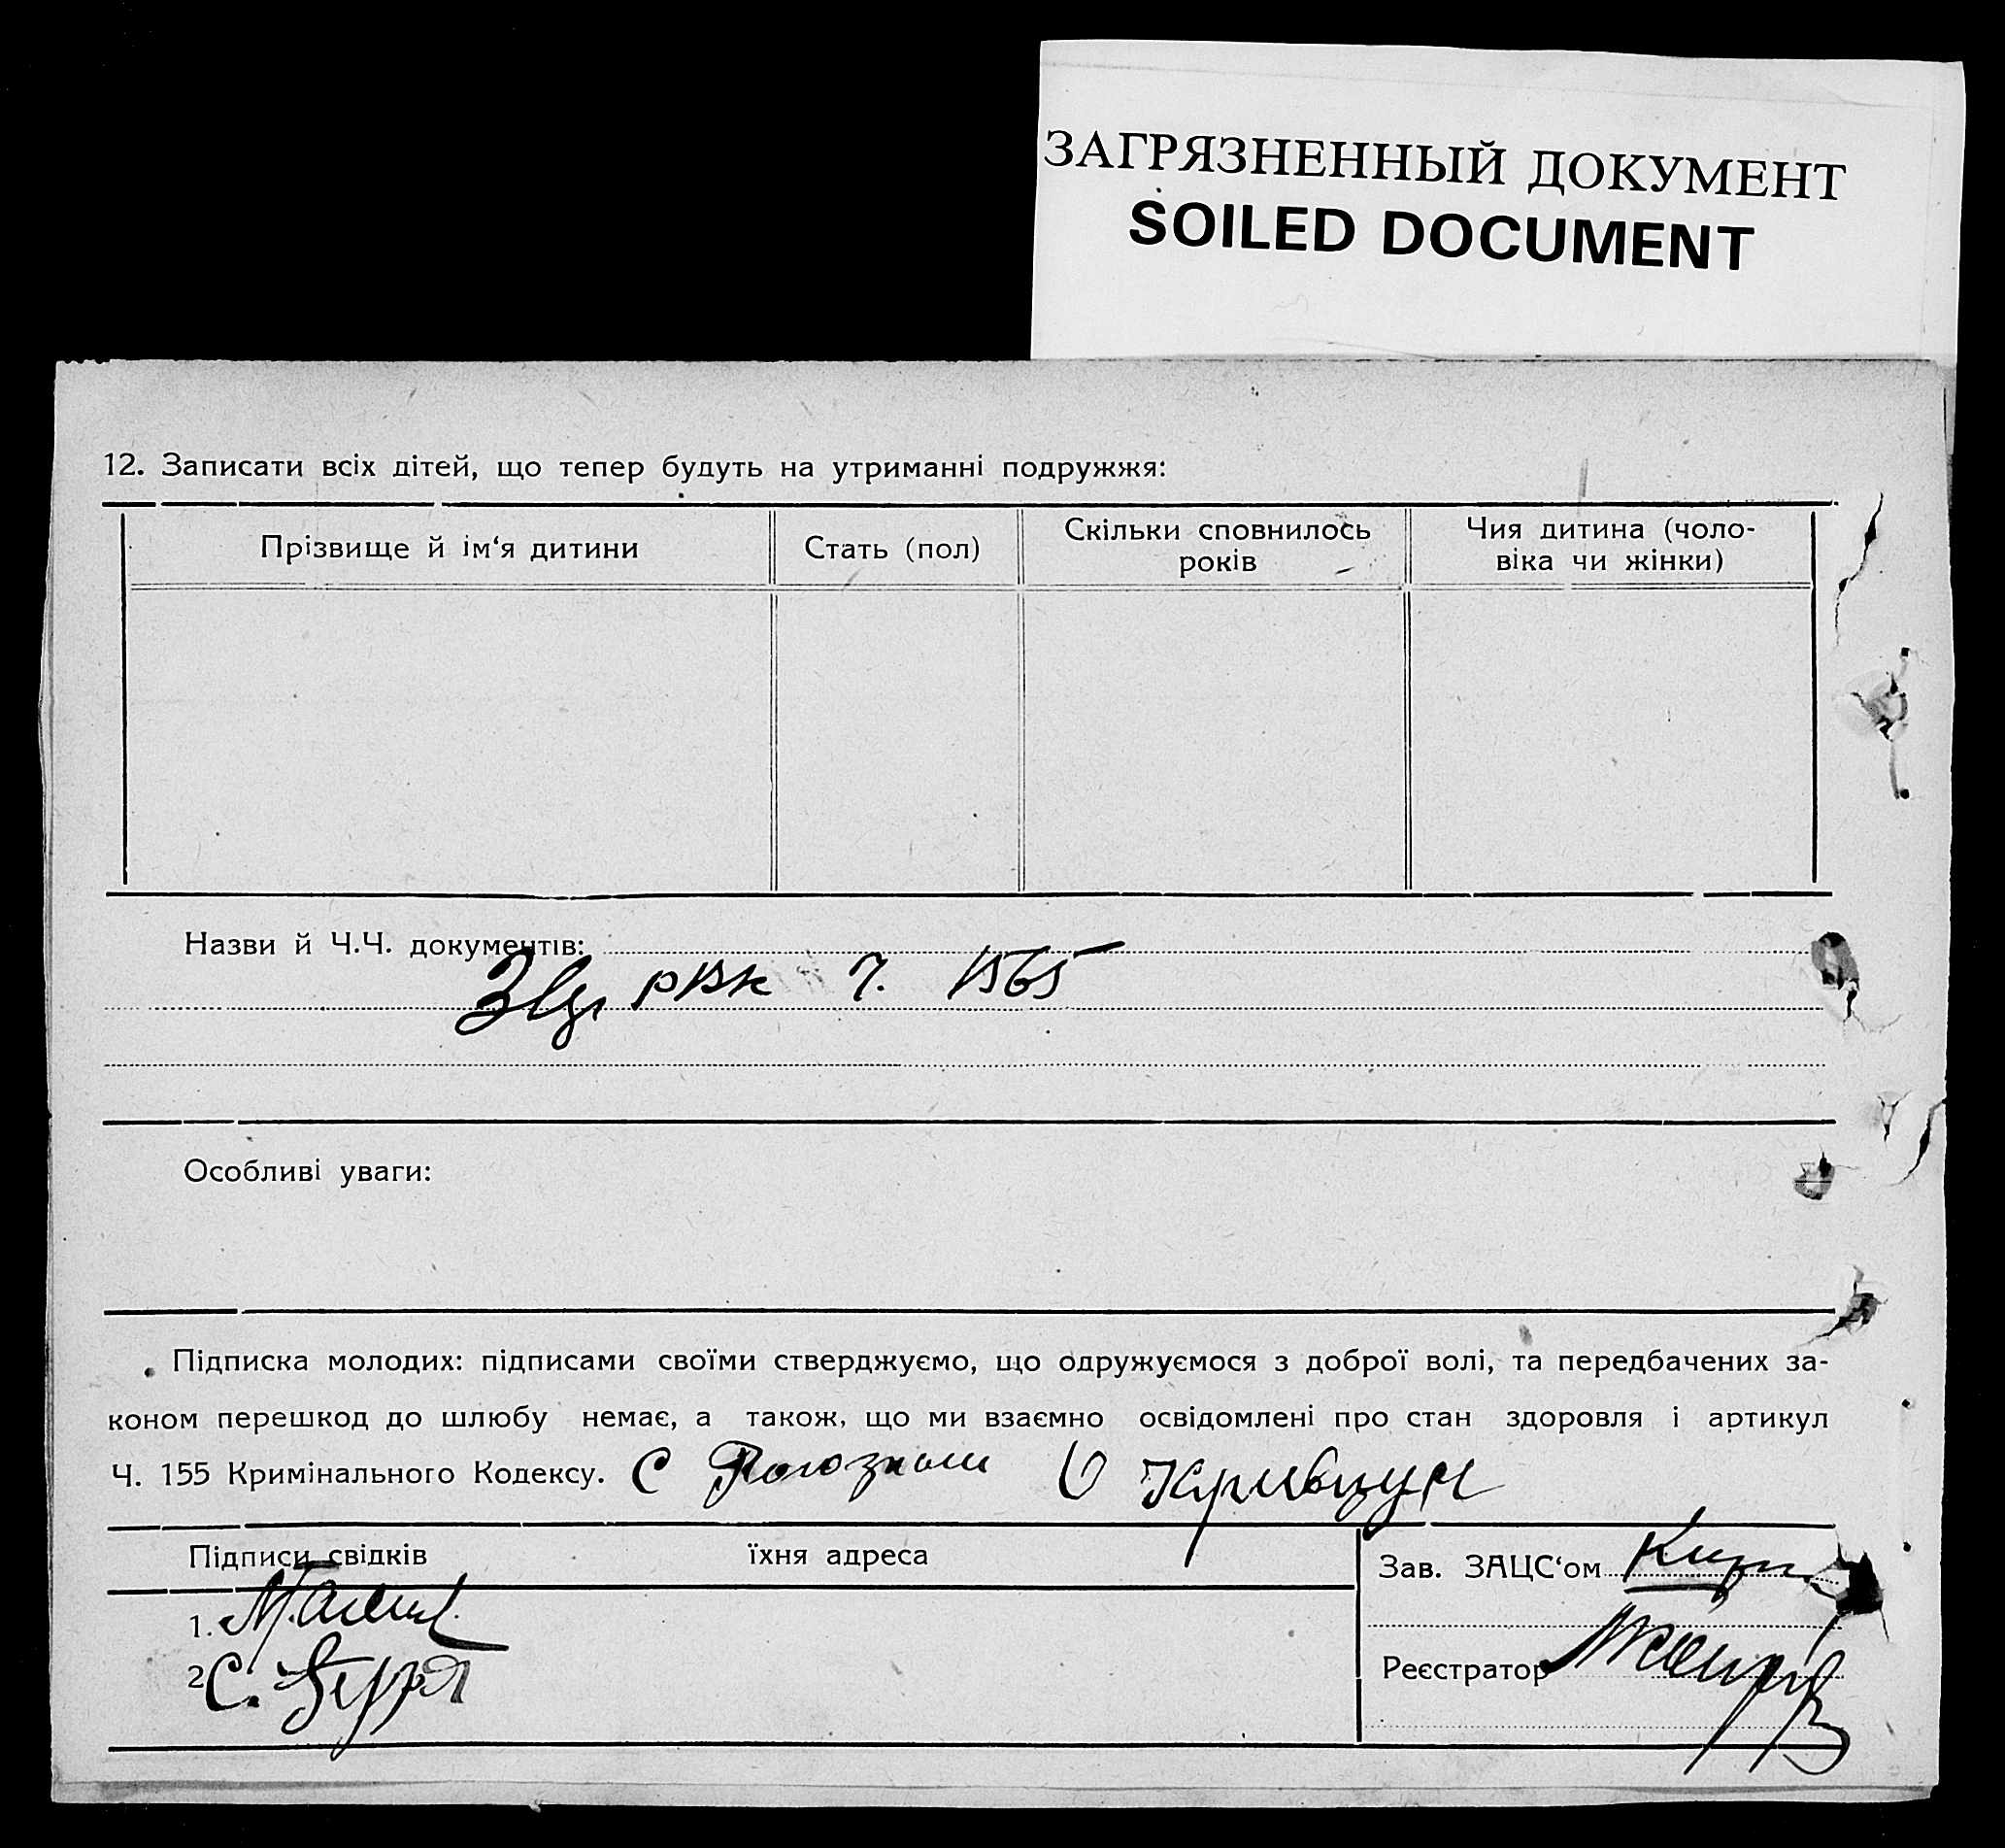 ЗАГРЯЗНЕННЫЙ ДОКУМЕНТ
SOILED DOCUMENT
12. Записати всіх дітей, що тепер будуть на утриманні подружжя:
Прізвище й ім‘я дитини
Стать (пол)
Скільки сповнилось
років
Чия дитина (чоло-
віка чи жінки)
Назви й Ч.Ч. документів:
РВК 1565
Особливі уваги:
Підписка молодих: підписами своїми стверджуємо, що одружуємося з доброї волі, та передбачених за-
коном перешкод до шлюбу немає, а також, що ми взаємно освідомлені про стан здоровля і артикул
Ч. 155 Кримінального Кодексу. С Кривцун
Підписи свідків
їхня адреса
Зав. ЗАЦС‘ом
1.
2 С.
Реєстратор